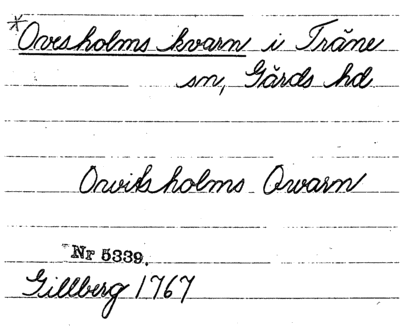 *Ovesholms kvarn i Träne
sn, Gärds hd
Orviksholms Qwarn
Nr 5339.
Gillberg 1767